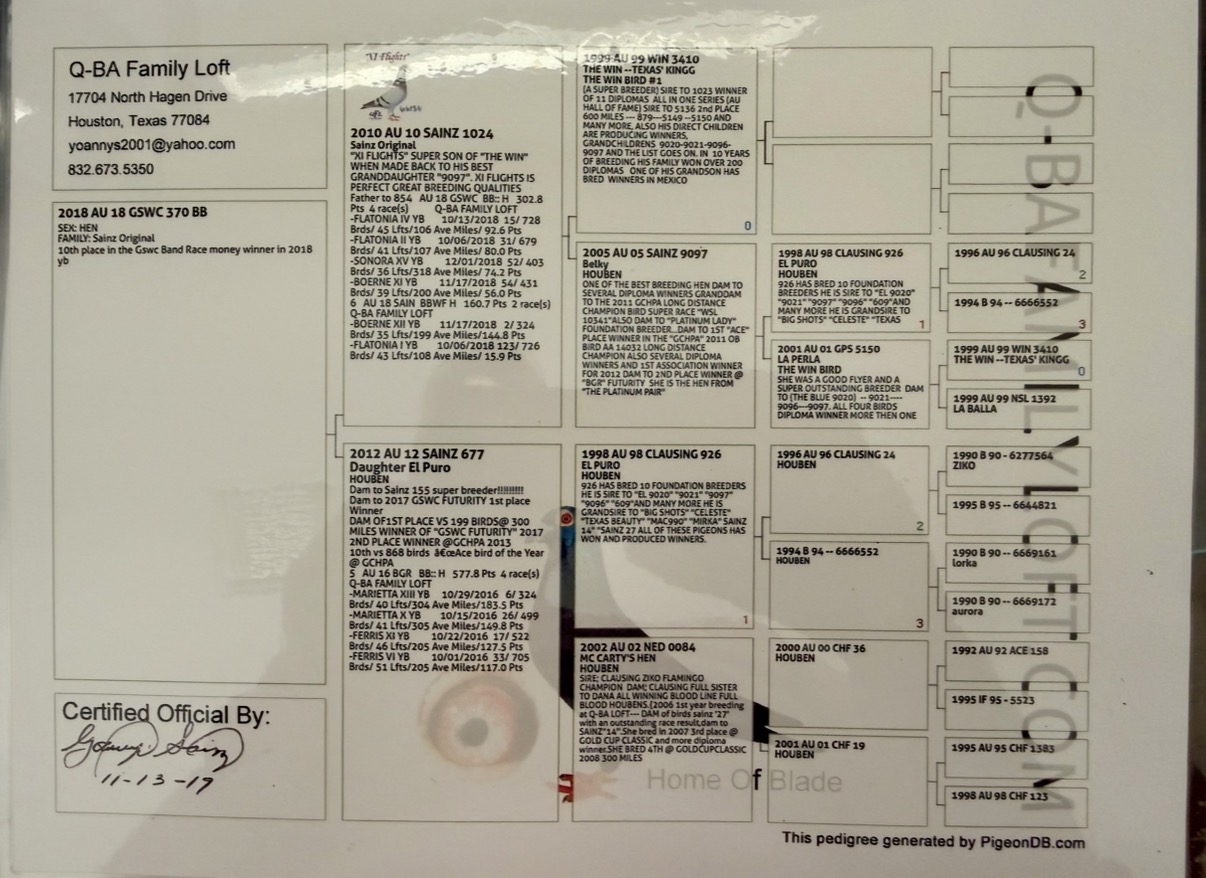 Q-BA Family Loft
17704 North Hagen Drive
Houston, Texas 77084
yoannys2001@yahoo.com
832.673.5350
2018 AU 18 GSWC 370 BB
SEX: HEN
FAMILY: Sainz Original
10th place in the Gswc Band Race money winner in 2018
yb
Certified Official By:
11-13-19
"XI Flights"
2010 AU 10 SAINZ 1024
Sainz Original
"XI FLIGHTS" SUPER SON OF "THE WIN"
WHEN MADE BACK TO HIS BEST
GRANDDAUGHTER "9097". XI FLIGHTS IS
PERFECT GREAT BREEDING QUALITIES
Father to 854 AU 18 GSWC BB:: H 302.8
Pts 4 race(s) Q-BA FAMILY LOFT
-FLATONIA IV YB 10/13/2018 15/ 728
Brds/ 45 Lfts/106 Ave Miles/ 92.6 Pts
-FLATONIA II YB 10/06/2018 31/ 679
Brds/ 41 Lfts/107 Ave Miles/ 80.0 Pts
-SONORA XV YB 12/01/2018 52/ 403
Brds/ 36 Lfts/318 Ave Miles/ 74.2 Pts
-BOERNE XI YB 11/17/2018 54/ 431
Brds/ 39 Lfts/200 Ave Miles/ 56.0 Pts
6 AU 18 SAIN BBWF H 160.7 Pts 2 race(s)
Q-BA FAMILY LOFT
-BOERNE XII YB 11/17/2018 2/ 324
Brds/ 35 Lfts/199 Ave Miles/144.8 Pts
-FLATONIA I YB 10/06/2018 123/ 726
Brds/ 43 Lfts/108 Ave Miles/ 15.9 Pts
2012 AU 12 SAINZ 677
Daughter El Puro
HOUBEN
Dam to Sainz 155 super breeder!!!!!!!!!
Dam to 2017 GSWC FUTURITY 1st place
Winner
DAM OF1ST PLACE VS 199 BIRDS@ 300
MILES WINNER OF "GSWC FUTURITY" 2017
2ND PLACE WINNER @GCHPA 2013
10th vs 868 birds â€œAce bird of the Year
@ GCHPA
5 AU 16 BGR BB:: H 577.8 Pts 4 race(s)
Q-BA FAMILY LOFT
-MARIETTA XIII YB 10/29/2016 6/ 324
Brds/ 40 Lfts/304 Ave Miles/183.5 Pts
-MARIETTA X YB 10/15/2016 26/ 499
Brds/ 41 Lfts/305 Ave Miles/149.8 Pts
-FERRIS XI YB 10/22/2016 17/ 522
Brds/ 46 Lfts/205 Ave Miles/127.5 Pts
-FERRIS VI YB 10/01/2016 33/ 705
Brds/ 51 Lfts/205 Ave Miles/117.0 Pts
1999 AU 99 WIN 3410
THE WIN --TEXAS' KINGG
THE WIN BIRD #1
(A SUPER BREEDER) SIRE TO 1023 WINNER
OF 11 DIPLOMAS ALL IN ONE SERIES (AU
HALL OF FAME) SIRE TO 5136 2nd PLACE
600 MILES --- 879---5149 --5150 AND
MANY MORE, ALSO HIS DIRECT CHILDREN
ARE PRODUCING WINNERS,
GRANDCHILDRENS 9020-9021-9096-
9097 AND THE LIST GOES ON. IN 10 YEARS
OF BREEDING HIS FAMILY WON OVER 200
DIPLOMAS ONE OF HIS GRANDSON HAS
BRED WINNERS IN MEXICO
0
2005 AU 05 SAINZ 9097
Belky
HOUBEN
ONE OF THE BEST BREEDING HEN DAM TO
SEVERAL DIPLOMA WINNERS GRANDDAM
TO THE 2011 GCHPA LONG DISTANCE
CHAMPION BIRD SUPER RACE "WSL
10341"ALSO DAM TO "PLATINUM LADY"
FOUNDATION BREEDER...DAM TO 1ST "ACE"
PLACE WINNER IN THE "GCHPA" 2011 OB
BIRD AA 14032 LONG DISTANCE
CHAMPION ALSO SEVERAL DIPLOMA
WINNERS AND 1ST ASSOCIATION WINNER
FOR 2012 DAM TO 2ND PLACE WINNER @
"BGR" FUTURITY SHE IS THE HEN FROM
"THE PLATINUM PAIR"
1998 AU 98 CLAUSING 926
EL PURO
HOUBEN
926 HAS BRED 10 FOUNDATION BREEDERS
HE IS SIRE TO "EL 9020" "9021" "9097"
"9096" "609"AND MANY MORE HE IS
GRANDSIRE TO "BIG SHOTS" "CELESTE"
"TEXAS BEAUTY" "MAC990" "MIRKA" SAINZ
14" "SAINZ 27 ALL OF THESE PIGEONS HAS
WON AND PRODUCED WINNERS.
1
2002 AU 02 NED 0084
MC CARTY'S HEN
HOUBEN
SIRE; CLAUSING ZIKO FLAMINGO
CHAMPION DAM; CLAUSING FULL SISTER
TO DANA ALL WINNING BLOOD LINE FULL
BLOOD HOUBENS.(2006 1st year breeding
at Q-BA LOFT--- DAM of birds sainz '27'
with an outstanding race result,dam to
SAINZ"14".She bred in 2007 3rd place @
GOLD CUP CLASSIC and more diploma
winner.SHE BRED 4TH @ GOLDCUPCLASSIC
2008 300 MILES
1998 AU 98 CLAUSING 926
EL PURO
HOUBEN
926 HAS BRED 10 FOUNDATION
BREEDERS HE IS SIRE TO "EL 9020"
"9021" "9097" "9096" "609"AND
MANY MORE HE IS GRANDSIRE TO
"BIG SHOTS" "CELESTE" "TEXAS
1
2001 AU 01 GPS 5150
LA PERLA
THE WIN BIRD
SHE WAS A GOOD FLYER AND A
SUPER OUTSTANDING BREEDER DAM
TO (THE BLUE 9020) -- 9021----
9096---9097. ALL FOUR BIRDS
DIPLOMA WINNER MORE THEN ONE
1996 AU 96 CLAUSING 24
HOUBEN
2
1994 B 94 -- 6666552
HOUBEN
3
2000 AU 00 CHF 36
HOUBEN
2001 AU 01 CHF 19
HOUBEN
1996 AU 96 CLAUSING 24
2
1994 B 94 -- 6666552
3
1999 AU 99 WIN 3410
THE WIN --TEXAS' KINGG
0
1999 AU 99 NSL 1392
LA BALLA
1990 B 90 - 6277564
ZIKO
1995 B 95 -- 6644821
1990 B 90 -- 6669161
lorka
1990 B 90 -- 6669172
aurora
1992 AU 92 ACE 158
1995 IF 95 - 5523
1995 AU 95 CHF 1383
1998 AU 98 CHF 123
Q-BA FAMILYLOFT.COM
Home Of Blade
This pedigree generated by PigeonDB.com